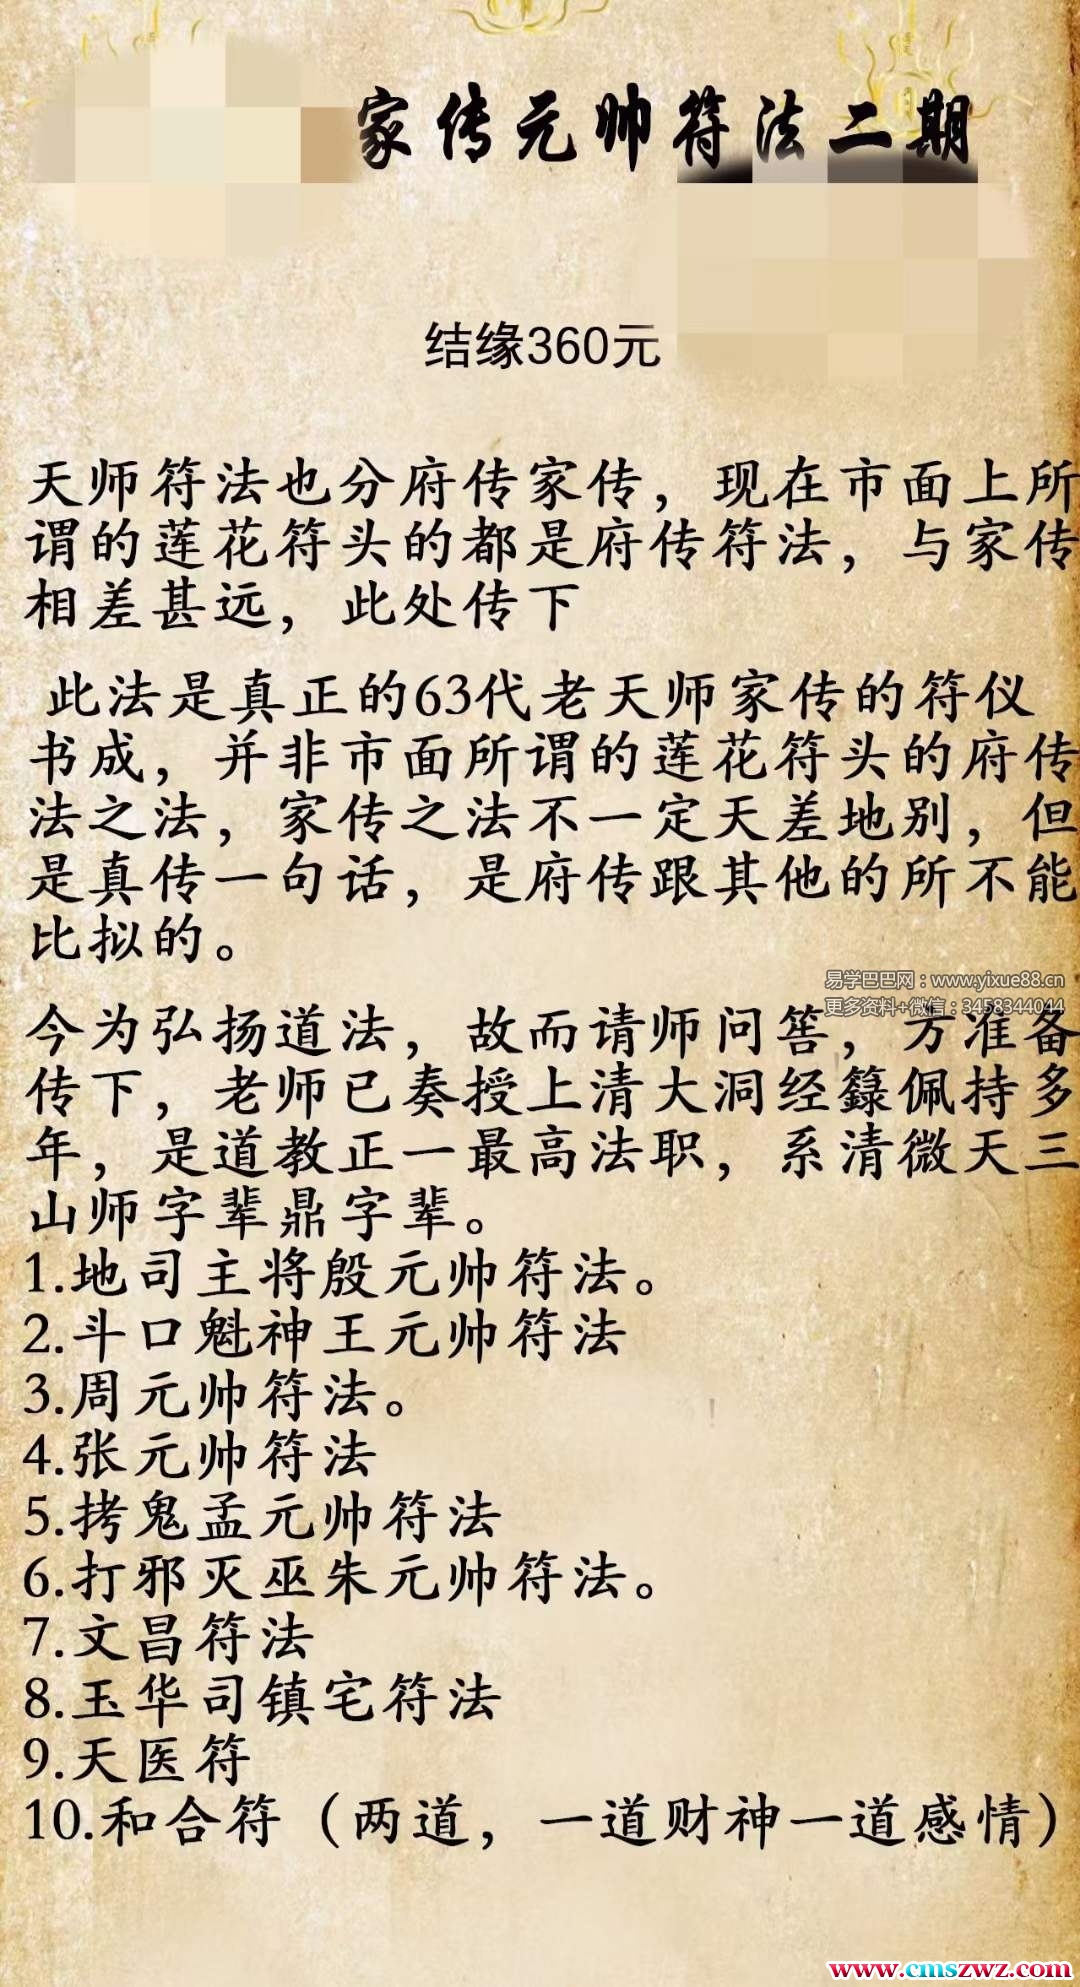 家传元帅符法二期
结缘360元
天师符法也分府传家传，现在市面上所
谓的莲花符头的都是府传符法，与家传
相差甚远，此处传下
此法是真正的63代老天师家传的符仪
书成，并非市面所谓的莲花符头的府传
法之法，家传之法不一定天差地别，但
是真传一句话，是府传跟其他的所不能
比拟的。
易学巴巴网：www.yixue88.cn
更多资料+微信：3458344044
今为弘扬道法，故而请师问筶，方准备
传下，老师已奏授上清大洞经籙佩持多
年，是道教正一最高法职，系清微天三
山师字辈鼎字辈。
1.地司主将殷元帅符法。
2.斗口魁神王元帅符法
3.周元帅符法。
4.张元帅符法
5.拷鬼孟元帅符法
6.打邪灭巫朱元帅符法。
7.文昌符法
8.玉华司镇宅符法
9.天医符
10.和合符（两道，一道财神一道感情）
www.cmszwz.com